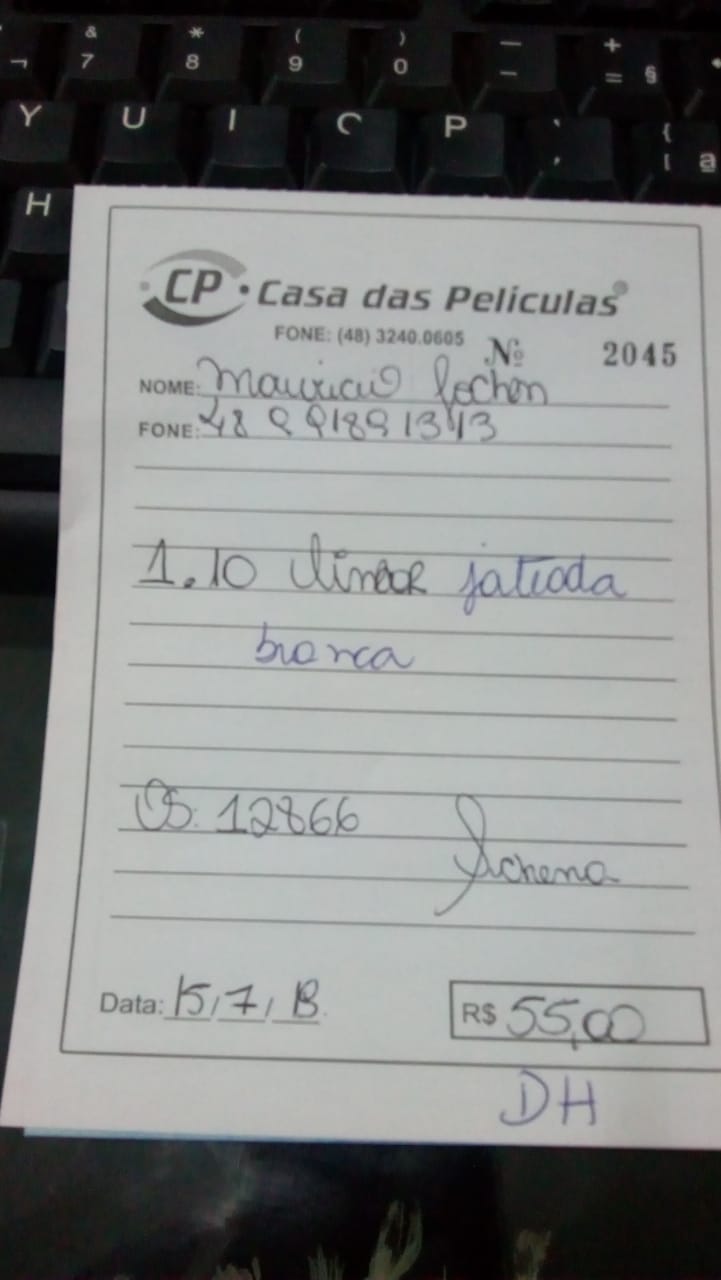 & * ( ) — +
¬ 7 8 9 0 – = §
Y U I O P ` {
, [ ª
H
CP • Casa das Películas
FONE: (48) 3240.0605
Nº 2045
NOME: Mauricio
FONE: 48 9 9189 1343
1.10 linear jatioda
branca
OS: 12866
Data: 15/7/
R$ 55,00
DH